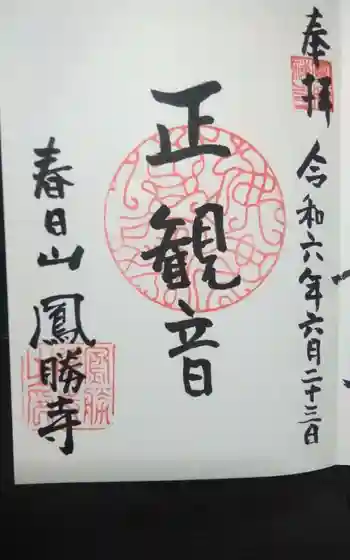 奉拝
令和六年六月二十三日
正観音
春日山
鳳勝寺